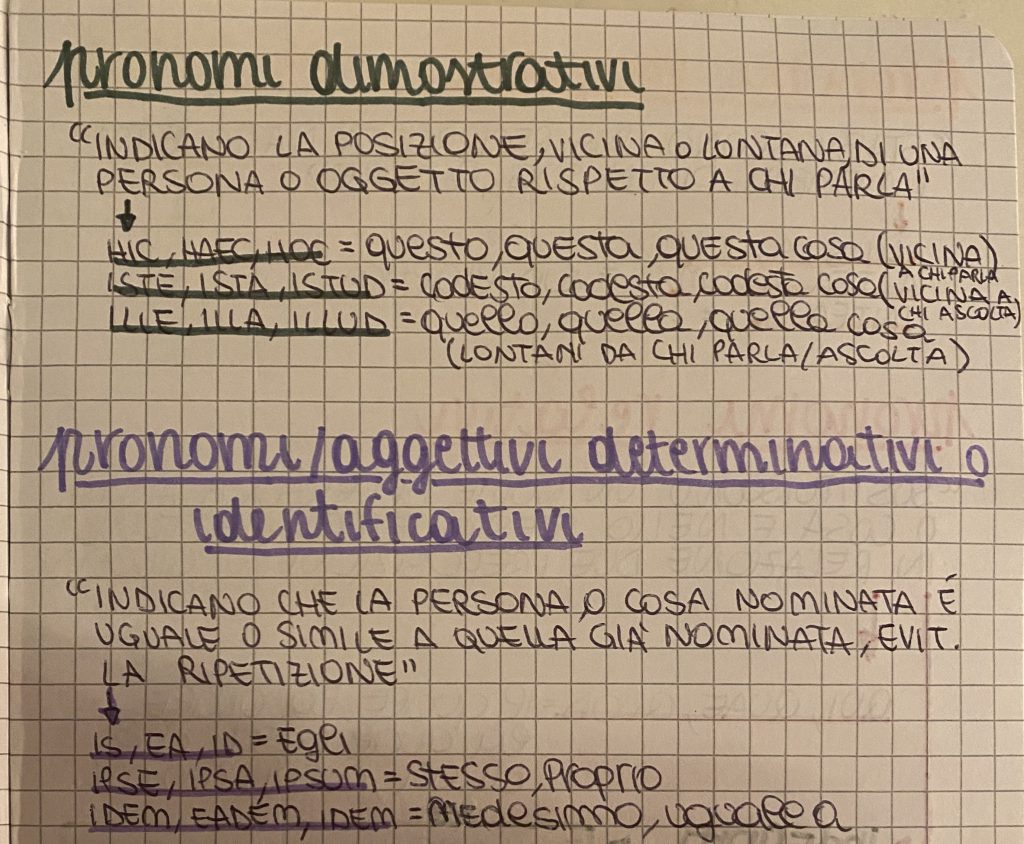 pronomi dimostrativi
“INDICANO LA POSIZIONE, VICINA O LONTANA, DI UNA
PERSONA O OGGETTO RISPETTO A CHI PARLA”
HIC, HAEC, HOC = questo, questa, questa cosa (VICINA
A CHI PARLA)
ISTE, ISTA, ISTUD = codesto, codesta, codesta cosa (VICINA A
CHI ASCOLTA)
ILLE, ILLA, ILLUD = quello, quella, quella cosa
(LONTANI DA CHI PARLA/ASCOLTA)
pronomi/aggettivi determinativi o
identificativi
“INDICANO CHE LA PERSONA O COSA NOMINATA É
UGUALE O SIMILE A QUELLA GIÀ NOMINATA, EVIT.
LA RIPETIZIONE”
IS, EA, ID = Egli
IPSE, IPSA, IPSUM = STESSO, PROPRIO
IDEM, EADEM, IDEM = MEDESIMO, uguale a